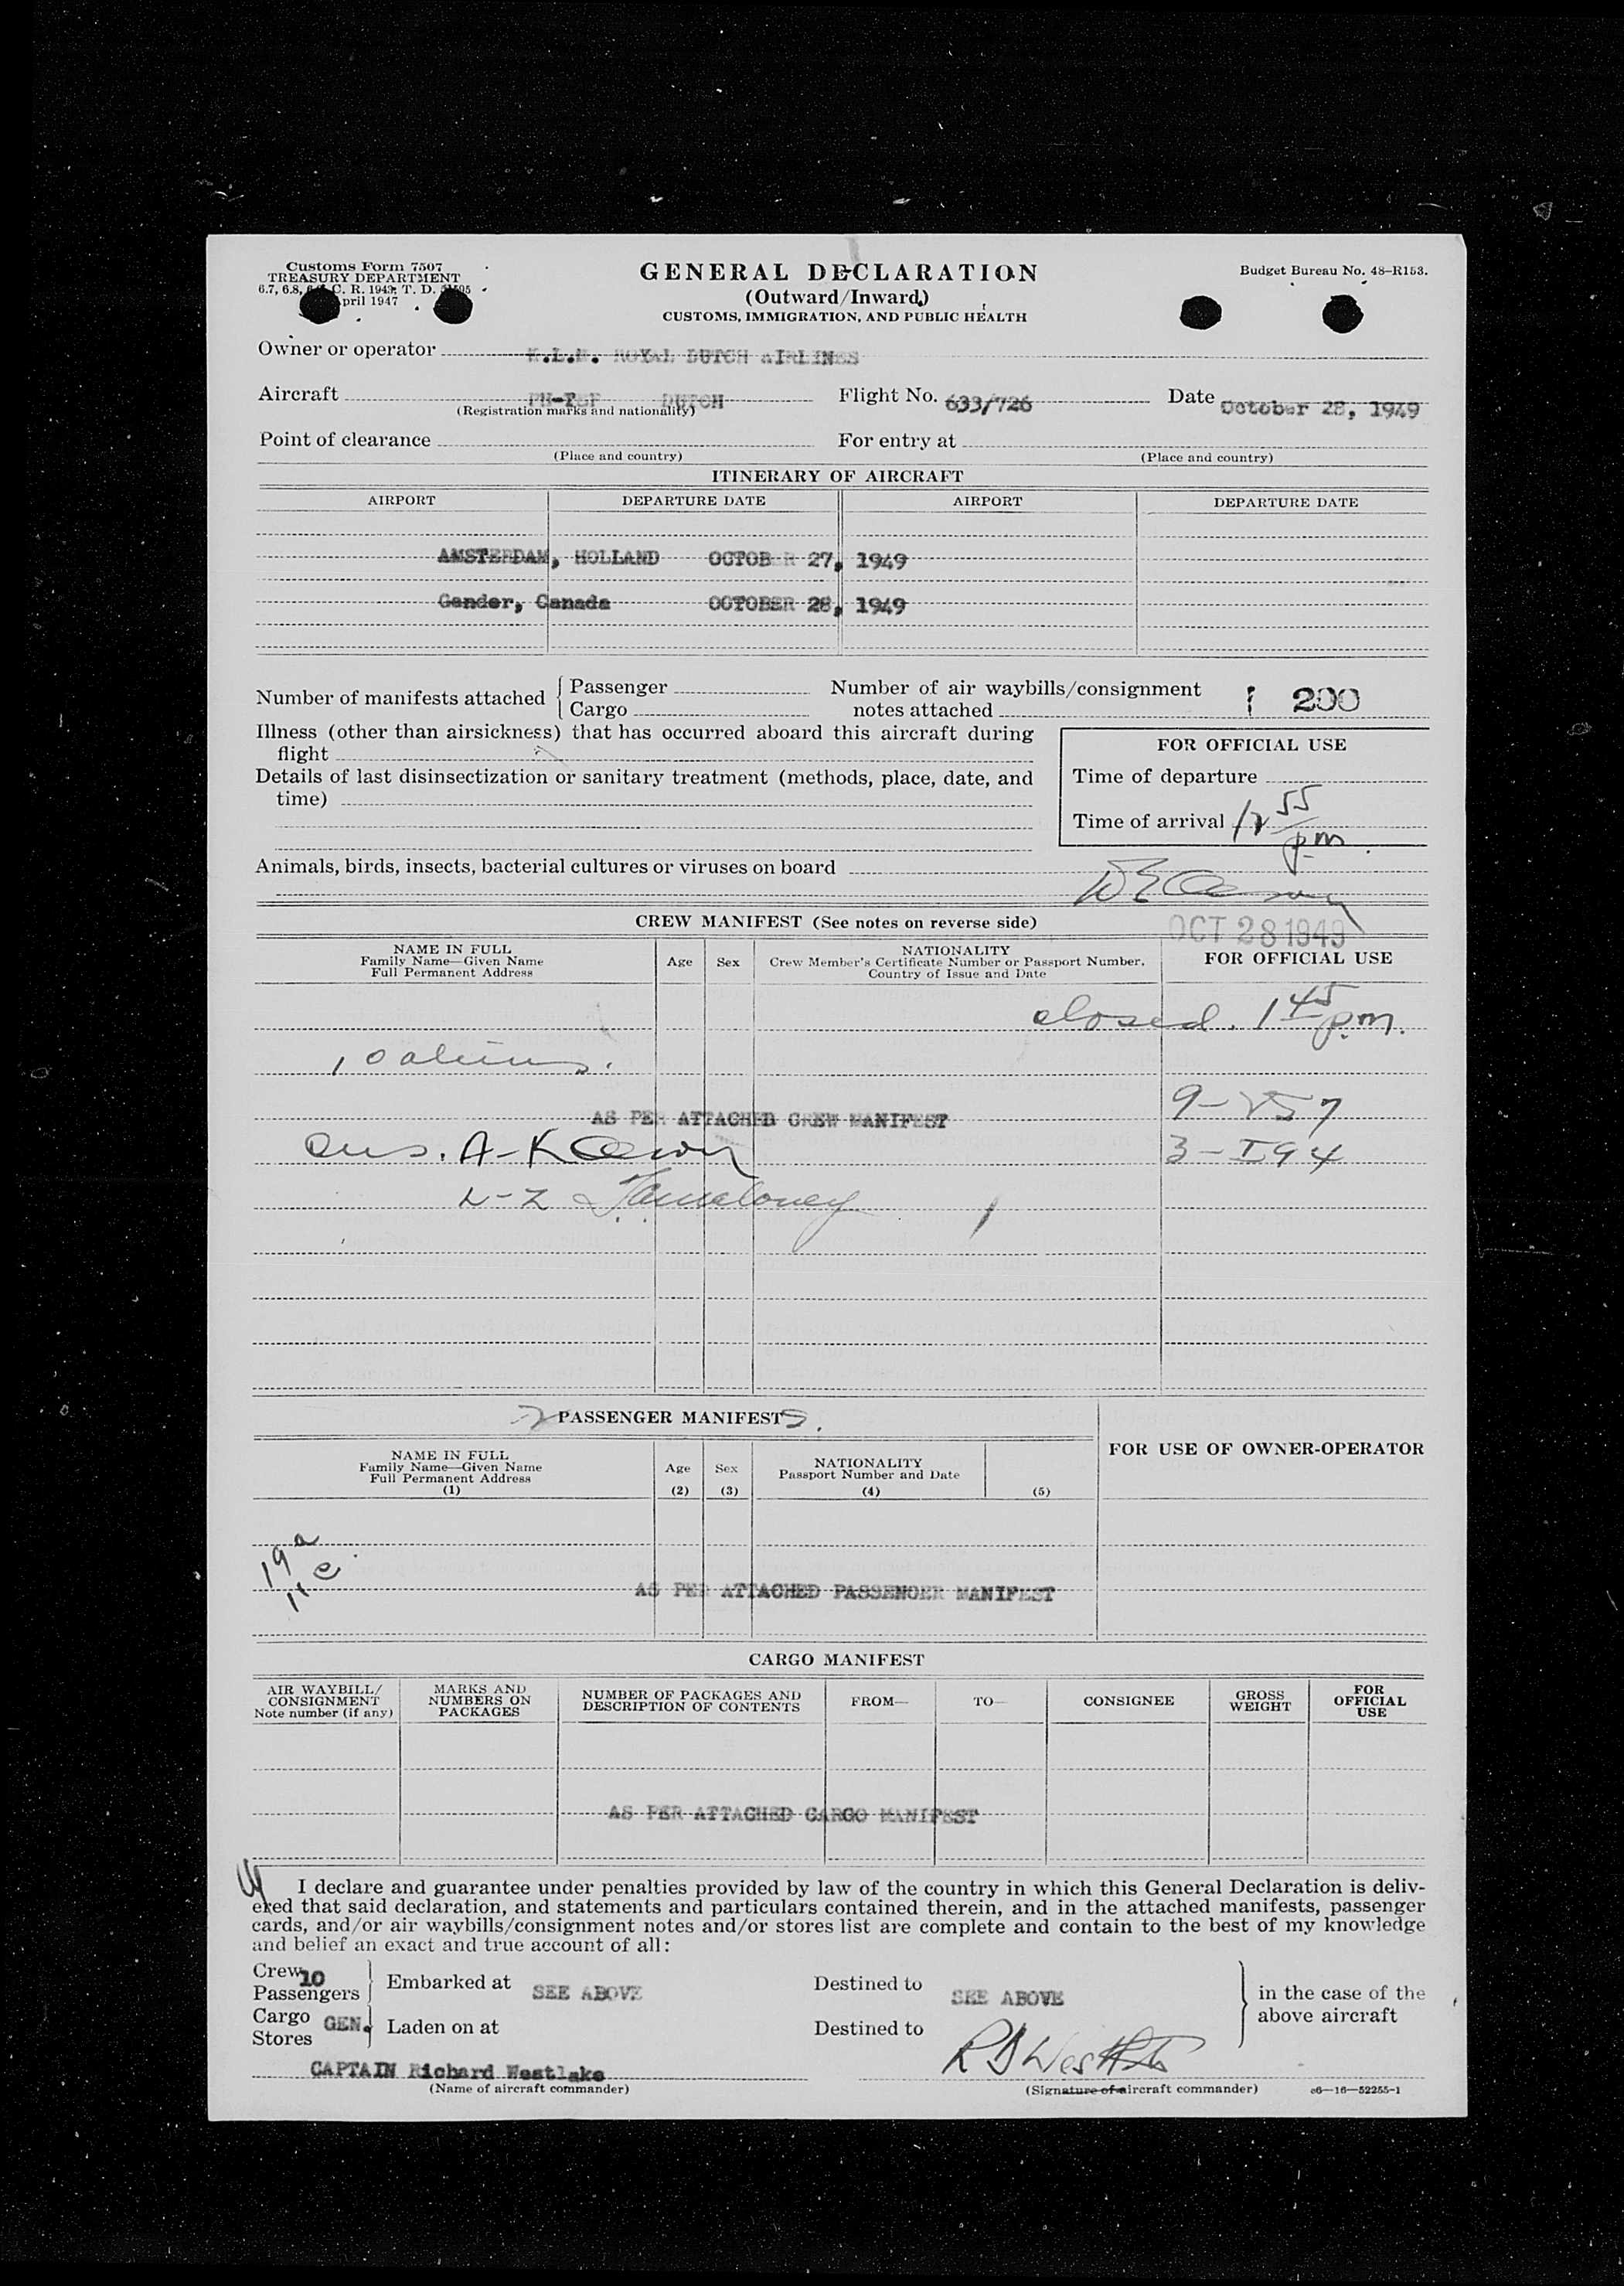 Customs Form 7507
TREASURY DEPARTMENT
6.7, 6.8, C. R. 1943; T. D.
April 1947
GENERAL DECLARATION
(Outward/Inward)
CUSTOMS, IMMIGRATION, AND PUBLIC HEALTH
Budget Bureau No. 48-R153.
Owner or operator K.L.M. ROYAL DUTCH AIRLINES
Aircraft DUTCH Flight No. 633/726 Date October 28, 1949
(Registration marks and nationality)
Point of clearance For entry at
(Place and country) (Place and country)
ITINERARY OF AIRCRAFT
AIRPORT DEPARTURE DATE AIRPORT DEPARTURE DATE
AMSTERDAM, HOLLAND OCTOBER 27, 1949
Gander, Canada OCTOBER 28, 1949
Number of manifests attached { Passenger
Cargo
Number of air waybills/consignment
notes attached
200
Illness (other than airsickness) that has occurred aboard this aircraft during
flight
Details of last disinsectization or sanitary treatment (methods, place, date, and
time)
FOR OFFICIAL USE
Time of departure
Time of arrival 12 55 pm
Animals, birds, insects, bacterial cultures or viruses on board
CREW MANIFEST (See notes on reverse side)
OCT 28 1949
NAME IN FULL
Family Name—Given Name
Full Permanent Address
Age Sex
NATIONALITY
Crew Member's Certificate Number or Passport Number,
Country of Issue and Date
FOR OFFICIAL USE
closed. 1 45 pm.
10 aliens.
9-257
AS PER ATTACHED CREW MANIFEST
A-K
3-I94
L-Z
PASSENGER MANIFEST
NAME IN FULL
Family Name—Given Name
Full Permanent Address
(1)
Age
(2)
Sex
(3)
NATIONALITY
Passport Number and Date
(4)
(5)
FOR USE OF OWNER-OPERATOR
19 a
11 c
AS PER ATTACHED PASSENGER MANIFEST
CARGO MANIFEST
AIR WAYBILL/
CONSIGNMENT
Note number (if any)
MARKS AND
NUMBERS ON
PACKAGES
NUMBER OF PACKAGES AND
DESCRIPTION OF CONTENTS
FROM—
TO—
CONSIGNEE
GROSS
WEIGHT
FOR
OFFICIAL
USE
AS PER ATTACHED CARGO MANIFEST
I declare and guarantee under penalties provided by law of the country in which this General Declaration is deliv-
ered that said declaration, and statements and particulars contained therein, and in the attached manifests, passenger
cards, and/or air waybills/consignment notes and/or stores list are complete and contain to the best of my knowledge
and belief an exact and true account of all:
Crew 10
Passengers
Embarked at SEE ABOVE Destined to SEE ABOVE
Cargo GEN.
Stores
Laden on at Destined to
in the case of the
above aircraft
CAPTAIN Richard Westlake
(Name of aircraft commander)
(Signature of aircraft commander)
c6—16—52255-1